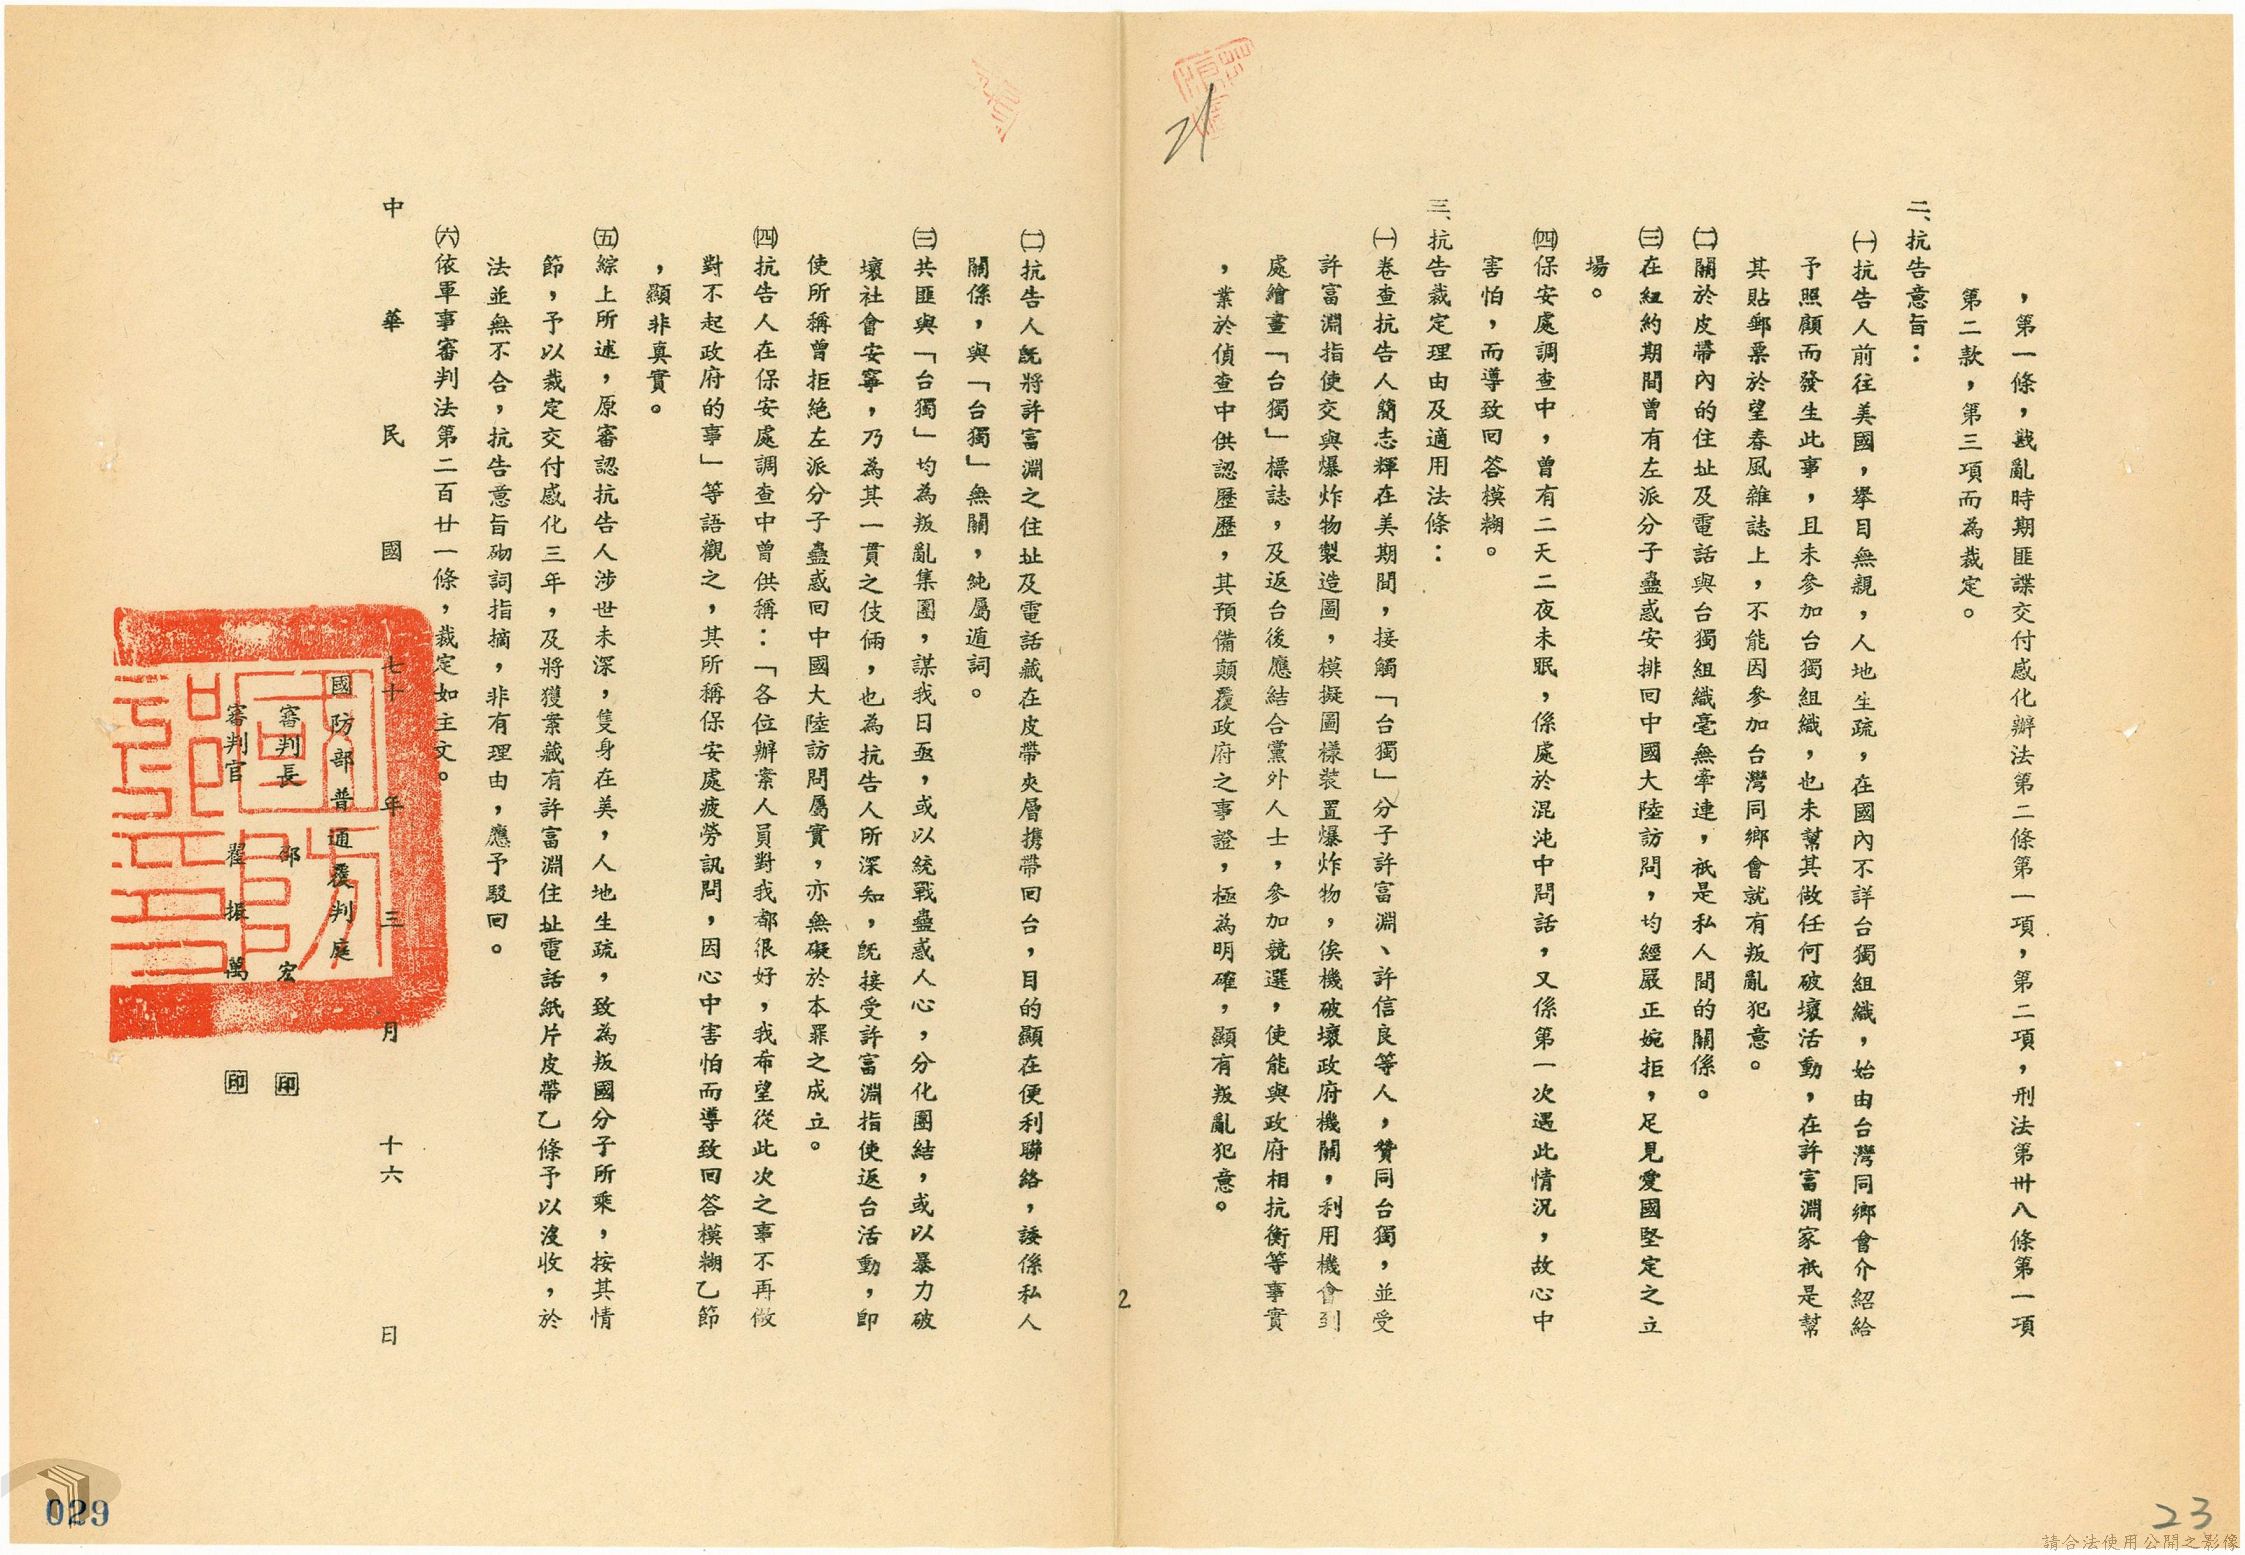 ，第一條，戡亂時期匪諜交付感化辦法第二條第一項，第二項，刑法第卅八條第一項
第二款，第三項而為裁定。
二、抗告意旨：
㈠抗告人前往美國，舉目無親，人地生疏，在國內不詳台獨組織，始由台灣同鄉會介紹給
予照顧而發生此事，且未參加台獨組織，也未幫其做任何破壞活動，在許富淵家祇是幫
其貼郵票於望春風雜誌上，不能因參加台灣同鄉會就有叛亂犯意。
㈡關於皮帶內的住址及電話與台獨組織毫無牽連，祇是私人間的關係。
㈢在紐約期間曾有左派分子蠱惑安排回中國大陸訪問，均經嚴正婉拒，足見愛國堅定之立
場。
㈣保安處調查中，曾有二天二夜未眠，係處於混沌中問話，又係第一次遇此情況，故心中
害怕，而導致回答模糊。
三、抗告裁定理由及適用法條：
㈠卷查抗告人簡志輝在美期間，接觸「台獨」分子許富淵、許信良等人，贊同台獨，並受
許富淵指使交與爆炸物製造圖，模擬圖樣裝置爆炸物，俟機破壞政府機關，利用機會到
處繪畫「台獨」標誌，及返台後應結合黨外人士，參加競選，使能與政府相抗衡等事實
，業於偵查中供認歷歷，其預備顛覆政府之事證，極為明確，顯有叛亂犯意。
2
㈡抗告人既將許富淵之住址及電話藏在皮帶夾層携帶回台，目的顯在便利聯絡，諉係私人
關係，與「台獨」無關，純屬遁詞。
㈢共匪與「台獨」均為叛亂集團，謀我日亟，或以統戰蠱惑人心，分化團結，或以暴力破
壞社會安寧，乃為其一貫之伎倆，也為抗告人所深知，既接受許富淵指使返台活動，即
使所稱曾拒絕左派分子蠱惑回中國大陸訪問屬實，亦無礙於本罪之成立。
㈣抗告人在保安處調查中曾供稱：「各位辦案人員對我都很好，我希望從此次之事不再做
對不起政府的事」等語觀之，其所稱保安處疲勞訊問，因心中害怕而導致回答模糊乙節
，顯非真實。
㈤綜上所述，原審認抗告人涉世未深，隻身在美，人地生疏，致為叛國分子所乘，按其情
節，予以裁定交付感化三年，及將獲案藏有許富淵住址電話紙片皮帶乙條予以沒收，於
法並無不合，抗告意旨砌詞指摘，非有理由，應予駁回。
㈥依軍事審判法第二百廿一條，裁定如主文。
中華民國七十年三月十六日
國防部普通覆判庭
審判長 邵宏 印
審判官 翟振萬 印
21
029
23
請合法使用公開之影像